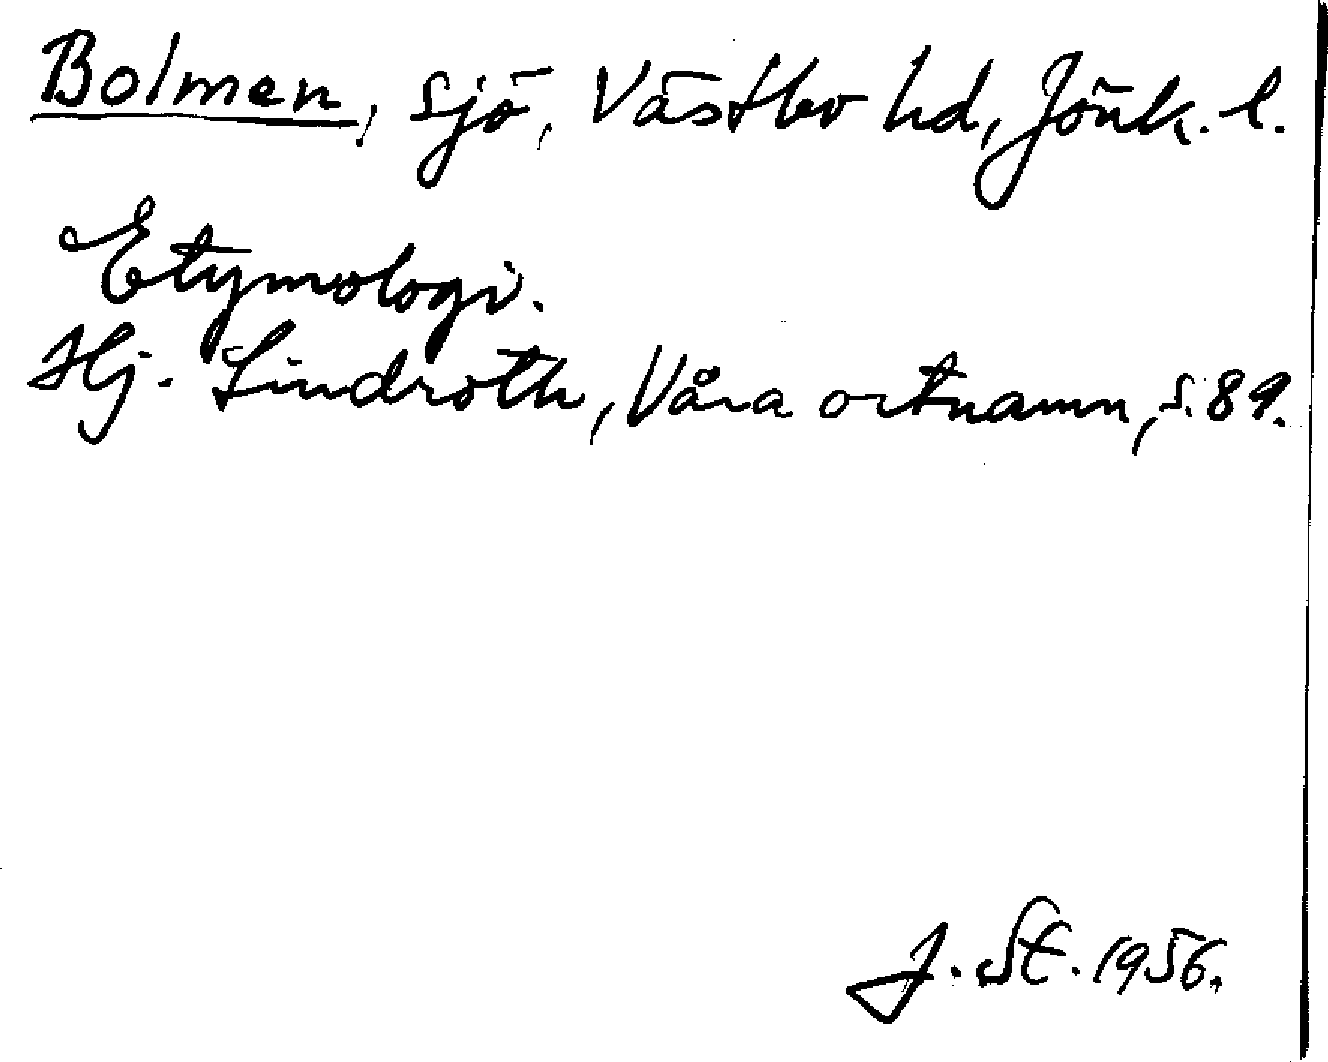 Bolmen, sjö, Västbo hd, Jönk. l.
Etymologi.
Hj. Lindroth, Våra ortnamn, s. 89.
J. St. 1956.